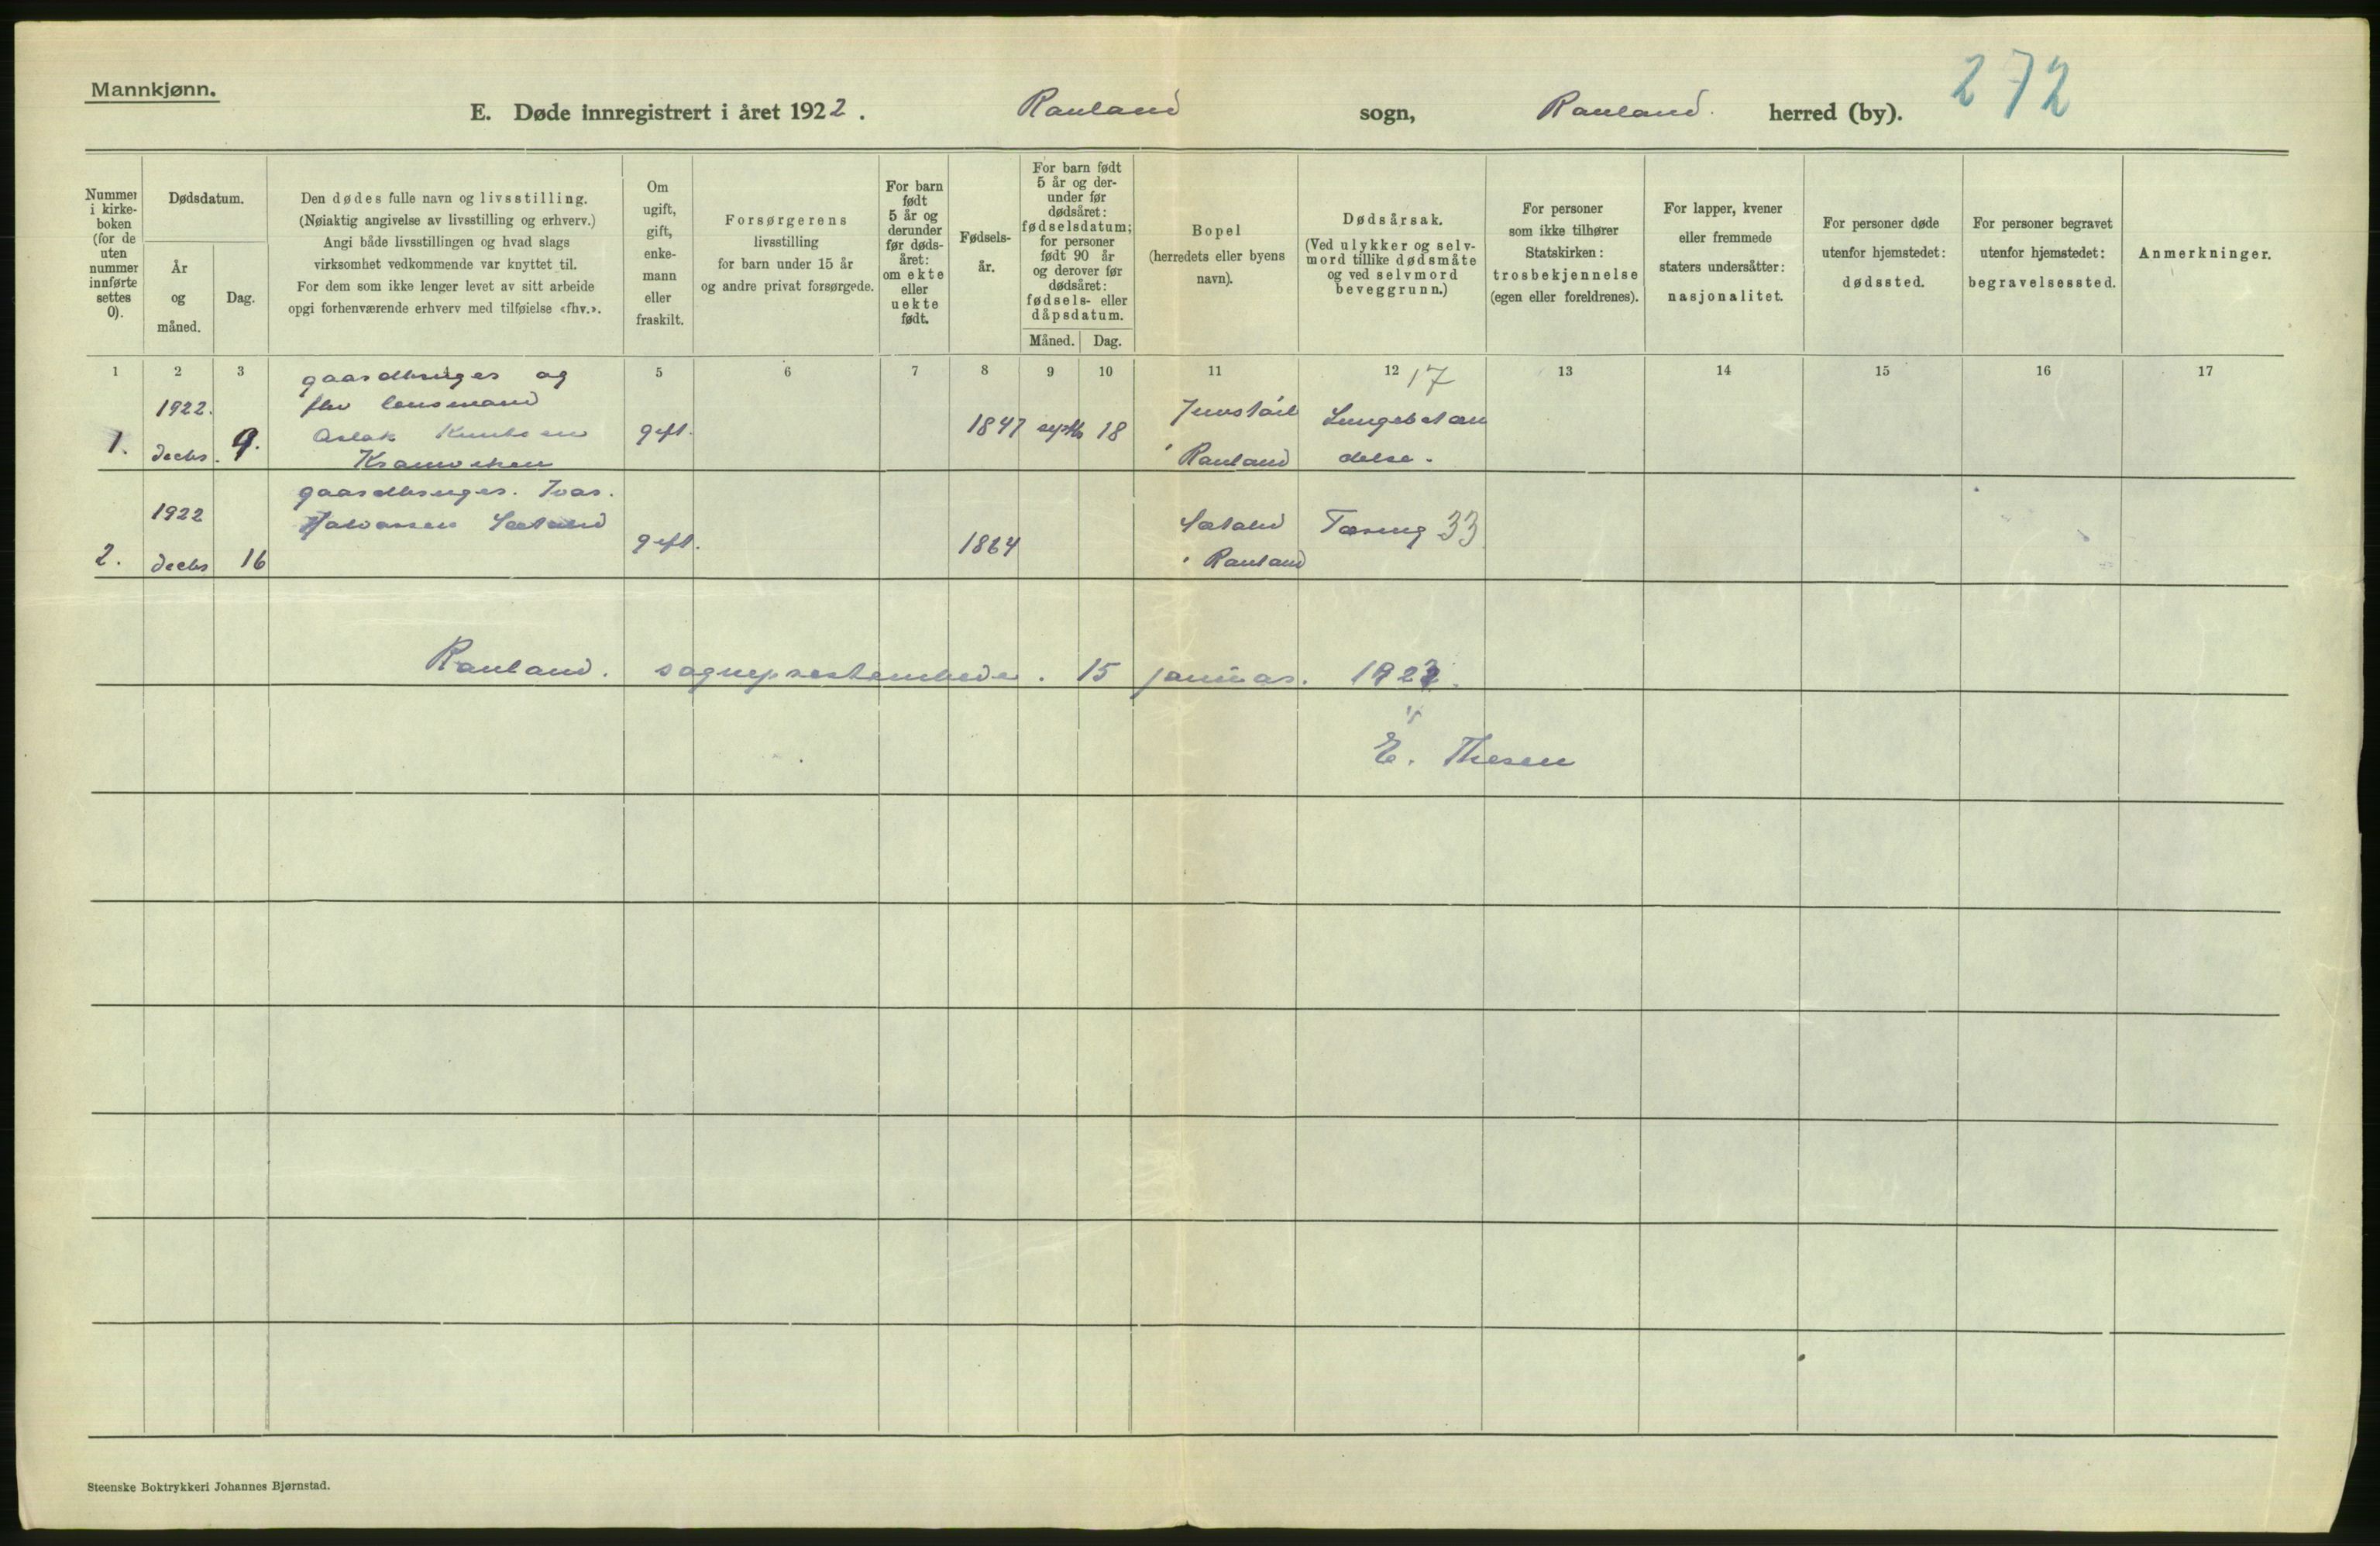 Mannkjønn.
272
E. Døde innregistrert i året 1922. Rauland sogn, Rauland. herred (by).
Nummer i kirkeboken (for de uten nummer innførte settes 0).
Dødsdatum.
År og måned.
Dag.
Den dødes fulle navn og livsstilling.
(Nøiaktig angivelse av livsstilling og erhverv.)
Angi både livsstillingen og hvad slags
virksomhet vedkommende var knyttet til.
For dem som ikke lenger levet av sitt arbeide
opgi forhenværende erhverv med tilføielse «fhv.».
Om
ugift,
gift,
enke-
mann
eller
fraskilt.
Forsørgerens
livsstilling
for barn under 15 år
og andre privat forsørgede.
For barn
født
5 år og
derunder
før døds-
året:
om ekte
eller
uekte
født.
Fødsels-
år.
For barn født
5 år og der-
under før
dødsåret:
fødselsdatum;
for personer
født 90 år
og derover før
dødsåret:
fødsels- eller
dåpsdatum.
Måned. Dag.
Bopel
(herredets eller byens
navn).
Dødsårsak.
(Ved ulykker og selv-
mord tillike dødsmåte
og ved selvmord
beveggrunn.)
For personer
som ikke tilhører
Statskirken:
trosbekjennelse
(egen eller foreldrenes).
For lapper, kvener
eller fremmede
staters undersåtter:
nasjonalitet.
For personer døde
utenfor hjemstedet:
dødssted.
For personer begravet
utenfor hjemstedet:
begravelsessted.
Anmerkninger.
1 2 3 5 6 7 8 9 10 11 12 13 14 15 16 17
17
1.
1922.
decbr. 9.
gaardbruger og
fhv lensmand
Aslak Knutsen
gift.
1847 septb 18
i Rauland
Lungebetæn
delse.
2.
1922
decbr 16
gaardbruger. Ivar.
Halvorsen
gift.
1864
i Rauland
Tæring 33
Rauland. sogneprestembede. 15 januar. 1923.
E. Thesen
Steenske Boktrykkeri Johannes Bjørnstad.